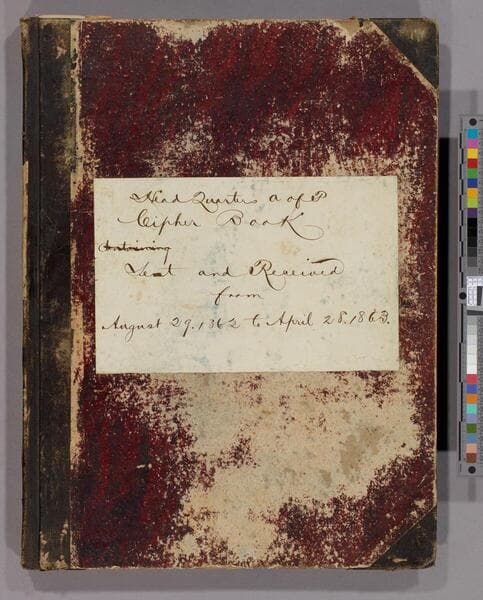 Head Quarters A of P
Cipher Book
Containing
Sent and Received
from
August 29. 1862 to April 28. 1863.